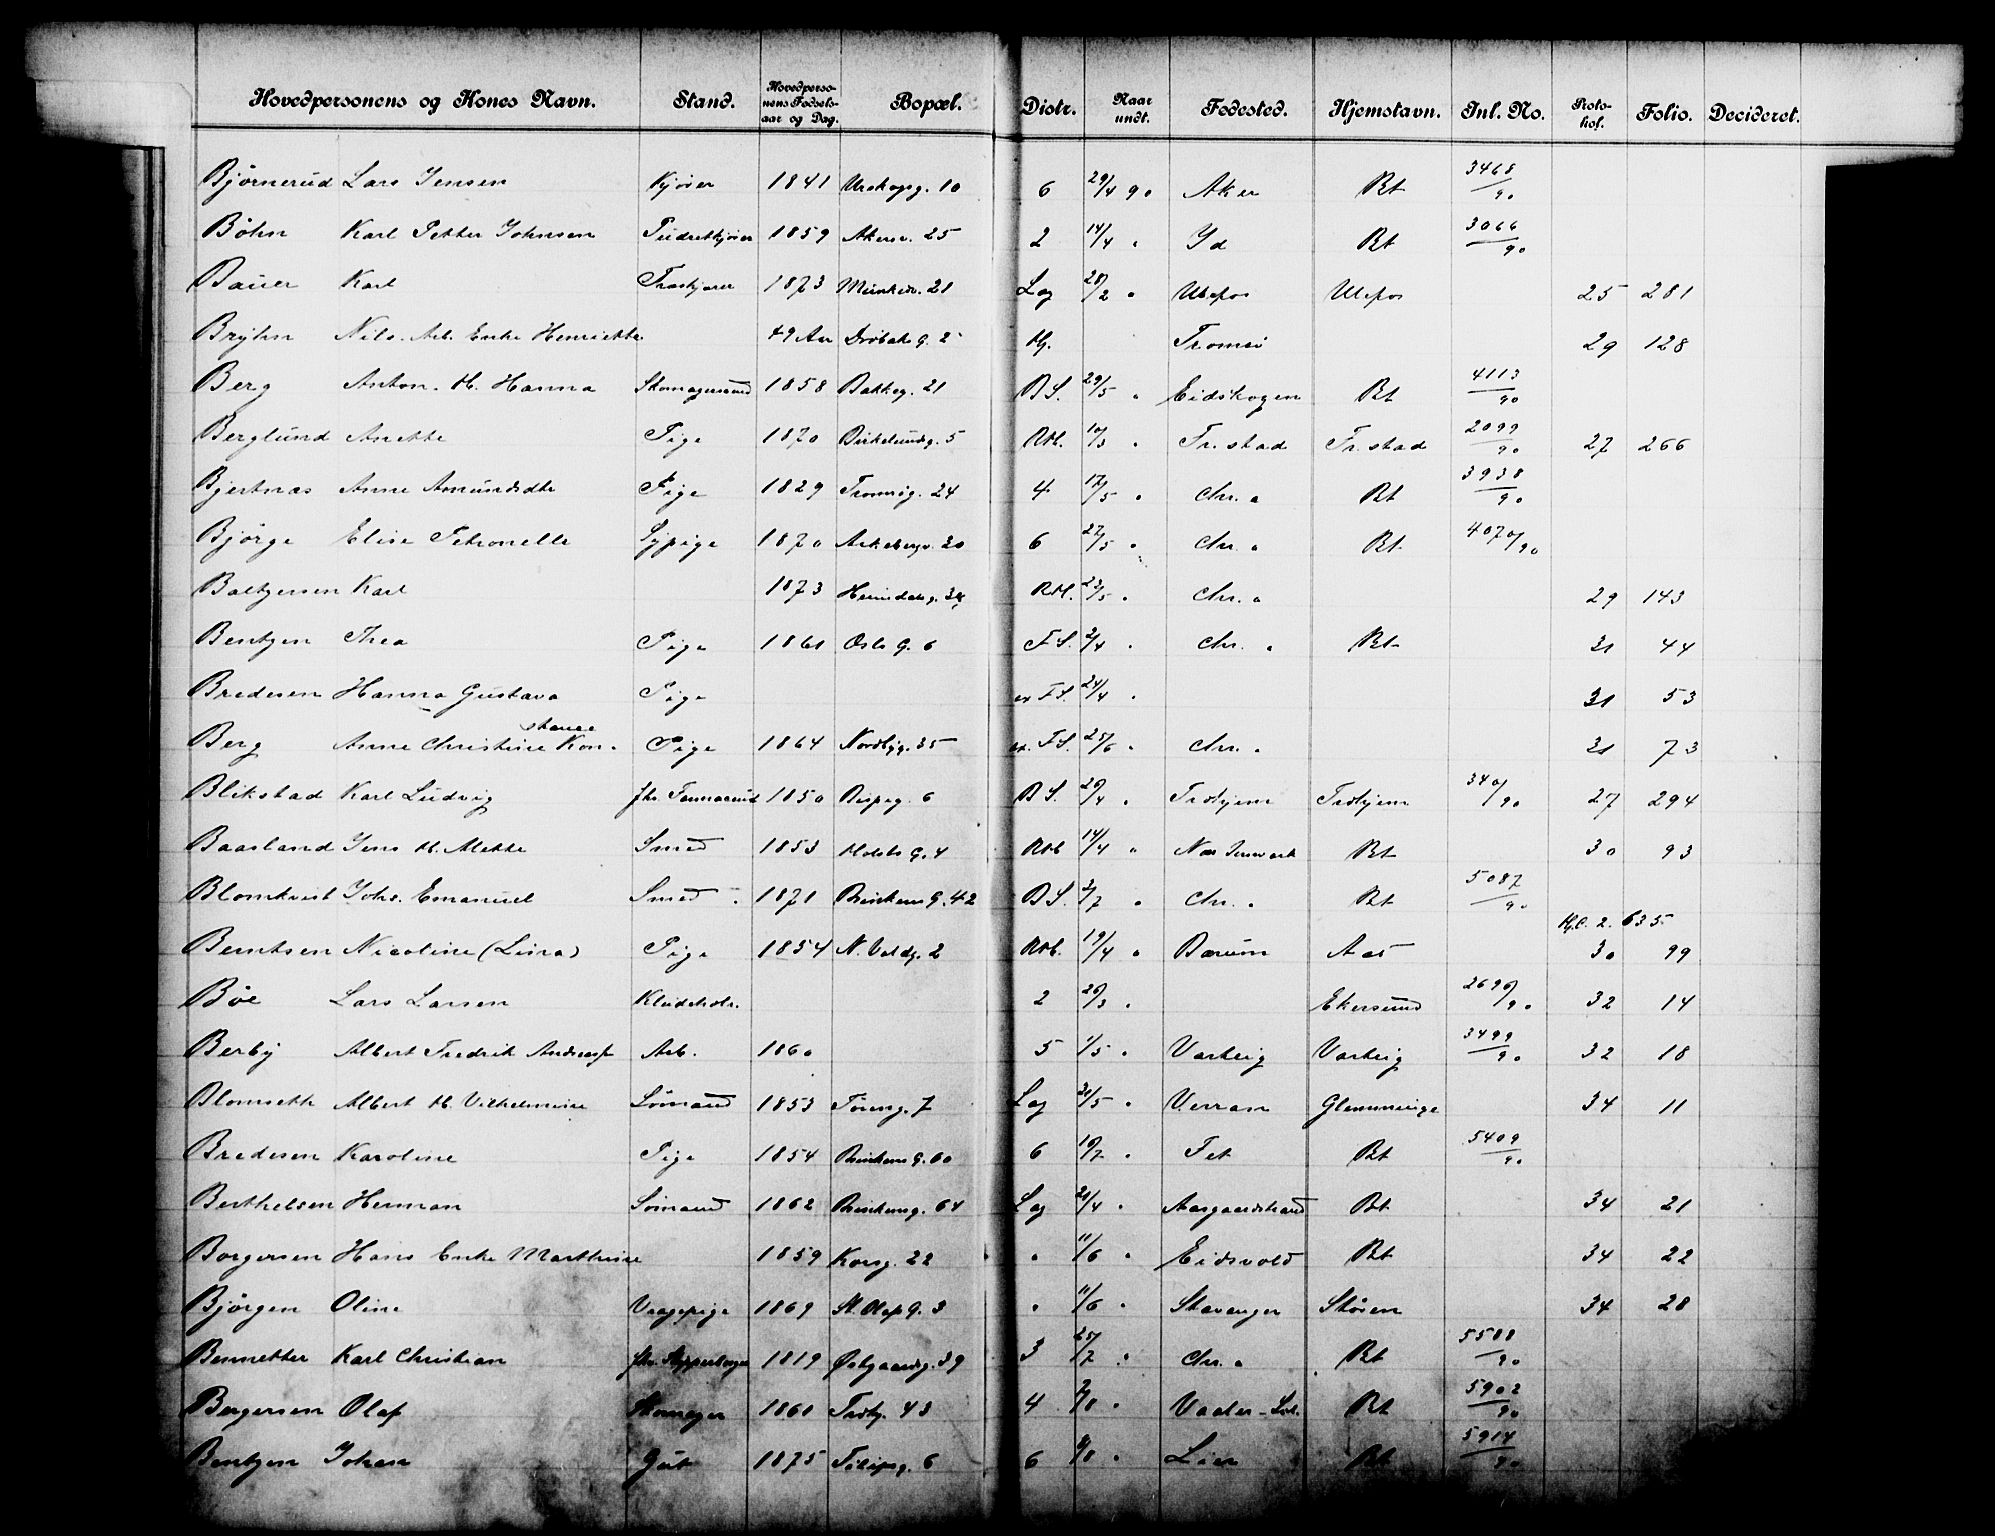 Hovedpersonens og Kones Navn. Stand. Hovedpersonens Fødselsaar og Dag. Bopæl. Distr. Naar undt. Fødested. Hjemstavn. Inl. No. Protokol. Folio. Decideret.
Bjørnerud Lars Jensen Kjører 1841 Urskogsg. 10 6 29/4 90 Aker Bt 3468/90
Bøhn Karl Petter Johnsen Pudretkjører 1859 Akersv. 25 2 14/4 " Id Bt 3066/90
Bauer Karl 1873 Munkedv. 21 Log 28/2 " Ulefos Ulefos 25 281
Bryhn Nils. Arb. Enke Henriette 49 Aar Drøbak G. 2 Hj. Tromsø 29 128
Berg Anton. H. Hanna Skomagersvend 1858 Bakkeg. 21 BS. 29/5 " Eidskogen Bt 4113/90
Berglund Anette Pige 1870 Birkelundg. 5 RH. 10/3 " Fr.stad Fr.stad 2099/90 27 266
Bjertnæs Anne Amundsdtr Pige 1829 Tromsøg. 24 4 17/5 " Chr. a Bt 3938/90
Bjørge Elise Petronelle Sypige 1870 Akebergv. 20 6 27/5 " Chr. a Bt 4070/90
Baltzersen Karl 1873 Heimdalsg. 34 RH. 23/5 " Chr. a 29 143
Bentzen Thea Pige 1861 Oslo G. 6 FS. 2/4 " Chr. a Bt 31 44
Bredesen Hanna Gustava Pige FS. 24/4 " 31 53
Berg Anne Christine Konstance Pige 1864 Nordbyg. 35 FS. 25/6 " Chr. a 31 73
Blikstad Karl Ludvig fhv. 1850 Bispeg. 6 BS. 20/4 " Trdhjem Trdhjem 340/90 27 294
Baasland Jens H. Alette Smed 1853 Holsts G. 4 RH 14/4 " Bt 30 93
Blomkvist Johs. Emanuel Smed 1871 Brinkens G. 42 BS. 3/7 " Chr. a Bt 5087/90
635
Berntsen Nicoline (Lina) Pige 1854 N. Voldg. 2 RH. 19/4 " Bærum Aas 30 99
Bøe Lars Larsen Kludeh. 2 26/3 " Ekersund 2696/90 32 14
Berby Albert Fredrik Andreas Arb. 1860 5 1/5 " Varteig Varteig 3499/90 32 18
Blomseth Albert H. Vilhelmine Sømand 1853 Tøieng. 7 Log 21/5 " Verran Glemminge 34 11
Bredesen Karoline Pige 1854 Brinkens G. 60 6 10/7 " Fet Bt 5409/90
Berthelsen Herman Sømand 1862 Brinkensg. 64 Log 21/4 " Aasgaardstrand Bt 34 21
Borgersen Hans Enke Marthine 1859 Korsg. 22 " 11/6 " Eidsvold Bt 34 22
Bjørgen Oline Væagepige 1869 St. Olaf G. 3 " 11/6 " Stavanger Støren 34 28
Bennetter Karl Christian fhv. 1819 Østgaardsg. 39 3 25/7 " Chr. a Bt 5588/90
Bergersen Olaf Skomager 1860 Trdhj. 43 4 7/8 " Vaaler Bt 5902/90
Bentzen Johan Gut 1875 Filipsg. 6 6 8/8 " Lier Bt 5914/90